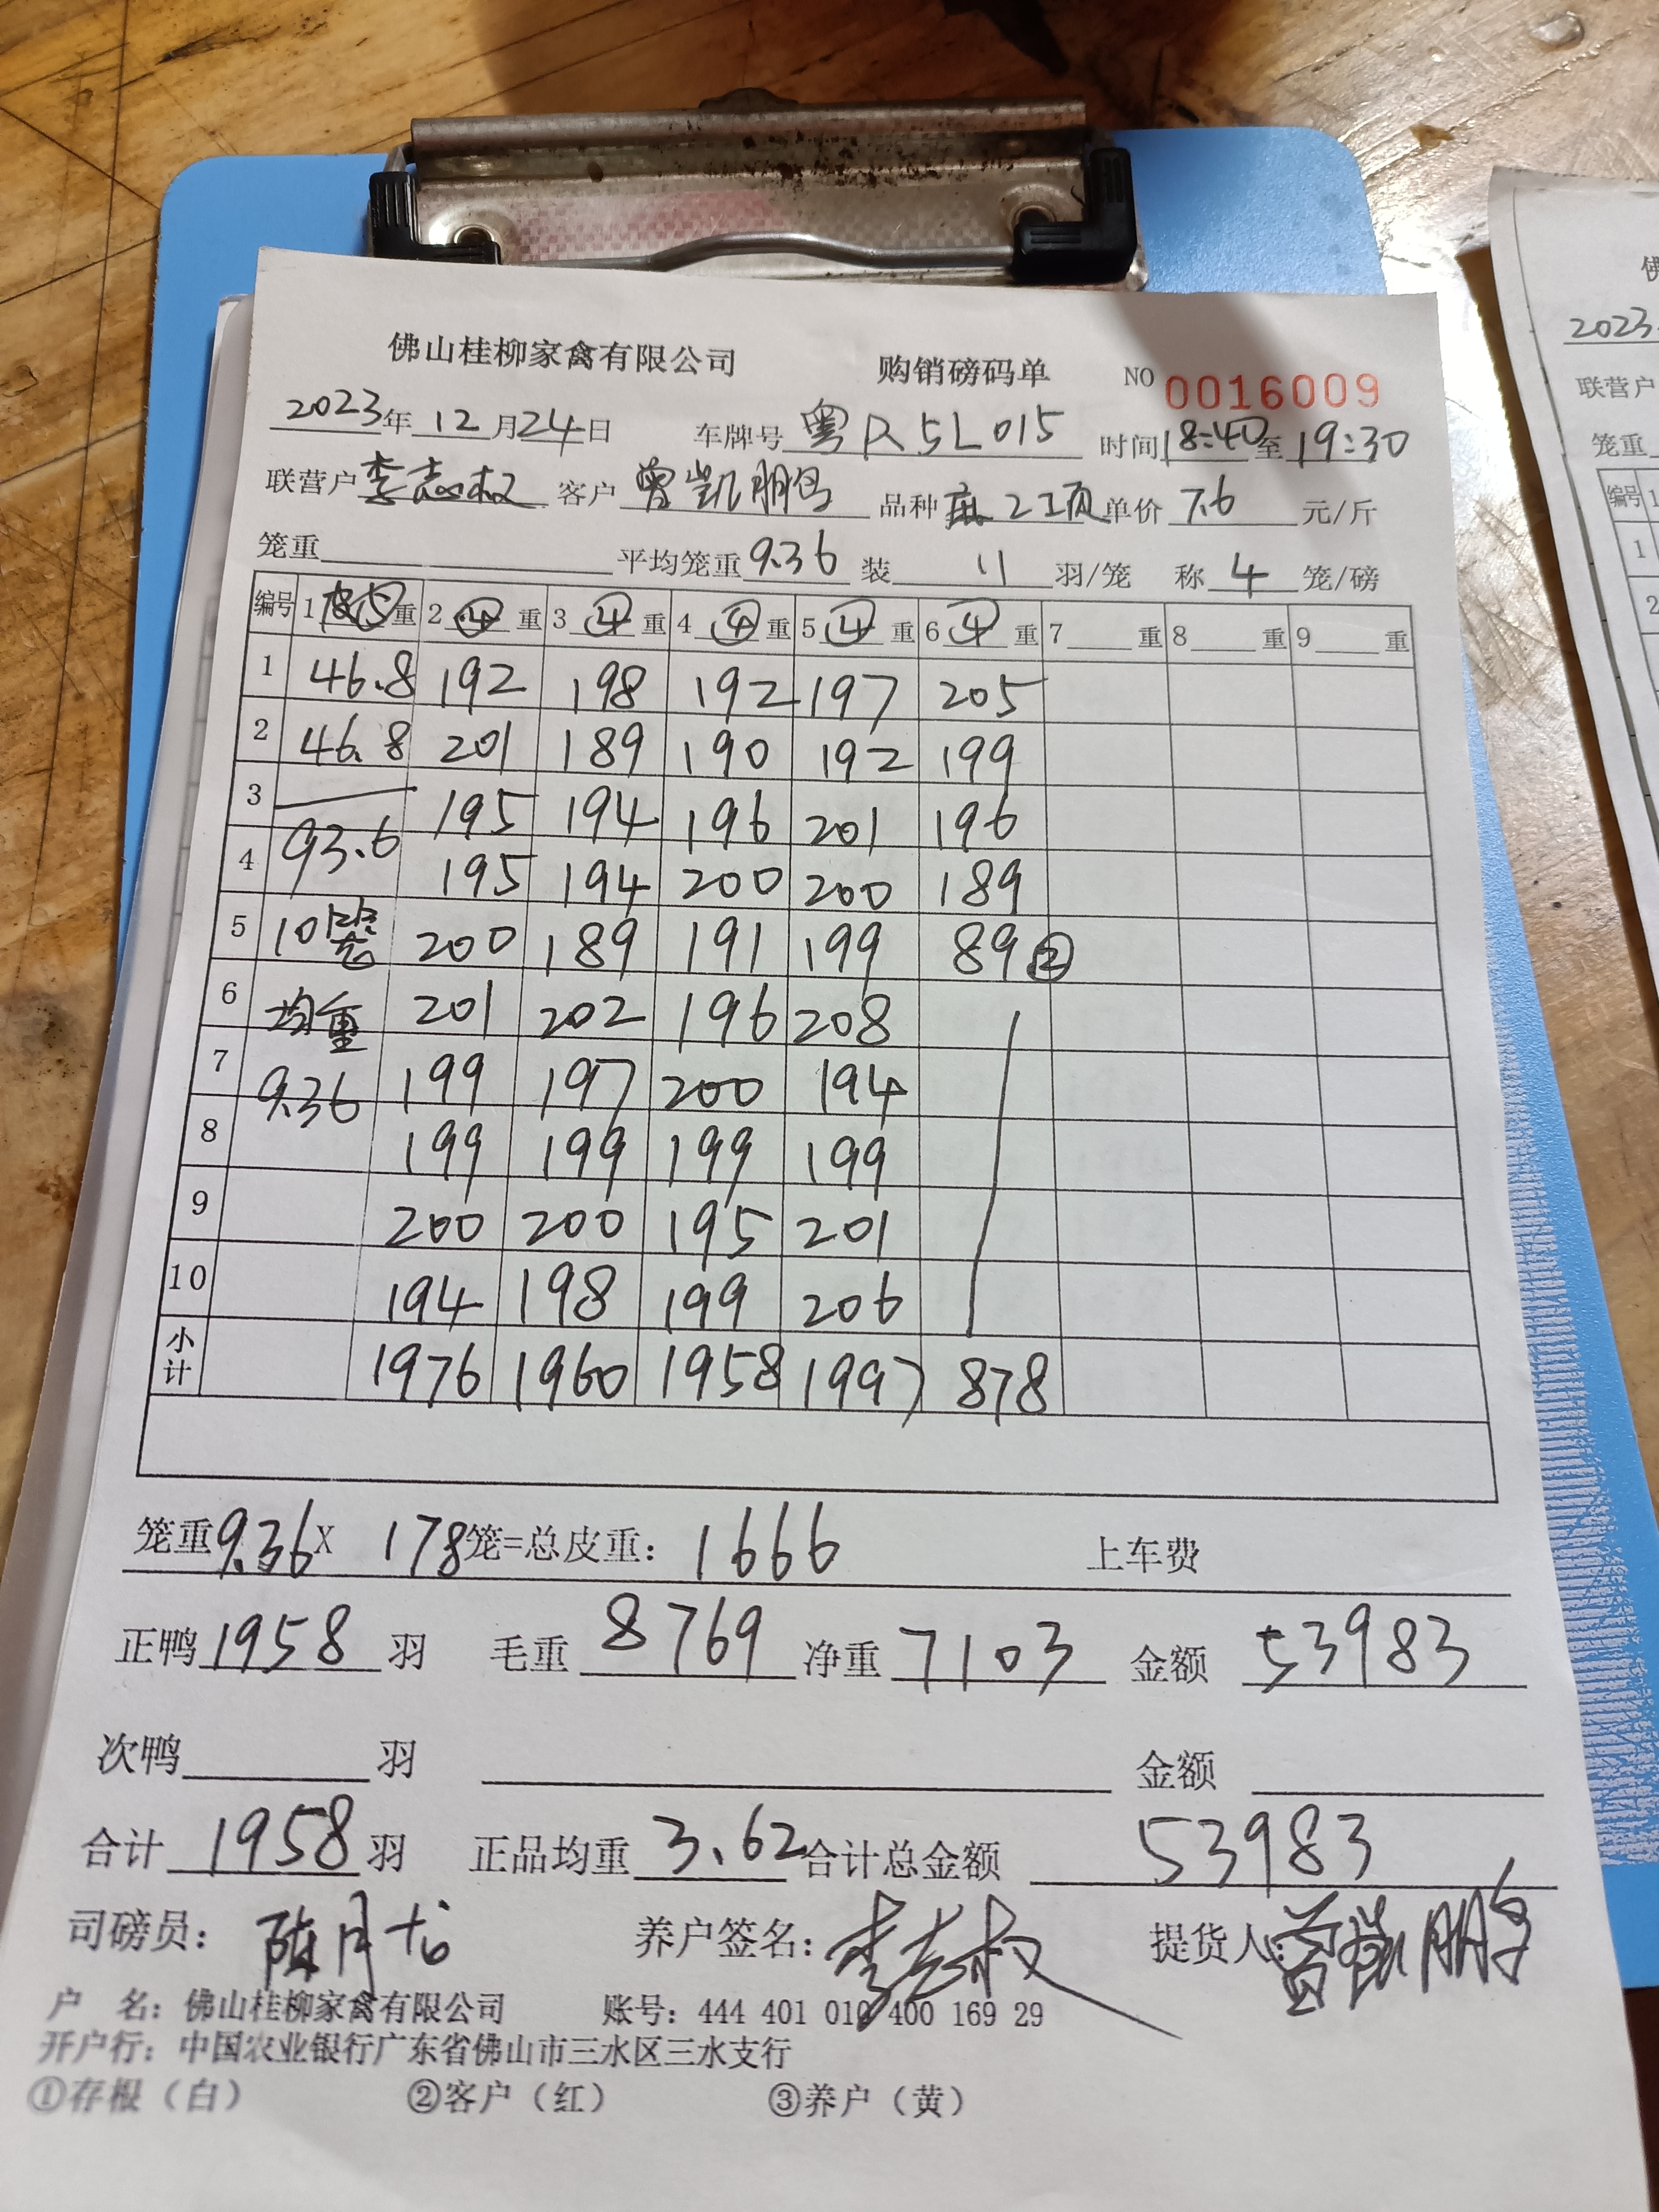 佛山桂柳家禽有限公司 购销磅码单 NO 0016009
2023年12月24日 车牌号 粤R5L015 时间18:40至19:30
联营户 李志权 客户 曾凯鹏 品种 麻2工页 单价 7.6 元/斤
笼重 平均笼重 9.36 装 11 羽/笼 称 4 笼/磅
编号 1 皮⑤重 2 ④ 重 3 ④ 重 4 ④ 重 5 ④ 重 6 ④ 重 7 重 8 重 9 重
1 46.8 192 198 192 197 205
2 46.8 201 189 190 192 199
3 195 194 196 201 196
4 93.6 195 194 200 200 189
5 10笼 200 189 191 199 89 ②
6 均重 201 202 196 208
7 9.36 199 197 200 194
8 199 199 199 199
9 200 200 195 201
10 194 198 199 206
小计 1976 1960 1958 1997 878
笼重9.36X 178笼=总皮重: 1666 上车费
正鸭 1958 羽 毛重 8769 净重 7103 金额 53983
次鸭 羽 金额
合计 1958 羽 正品均重 3.62 合计总金额 53983
司磅员: 陈月龙 养户签名: 李志权 提货人: 曾凯鹏
户 名: 佛山桂柳家禽有限公司 账号: 444 401 010 400 169 29
开户行: 中国农业银行广东省佛山市三水区三水支行
①存根（白） ②客户（红） ③养户（黄）
佛
2023
联营户
笼重
编号 1
1
2